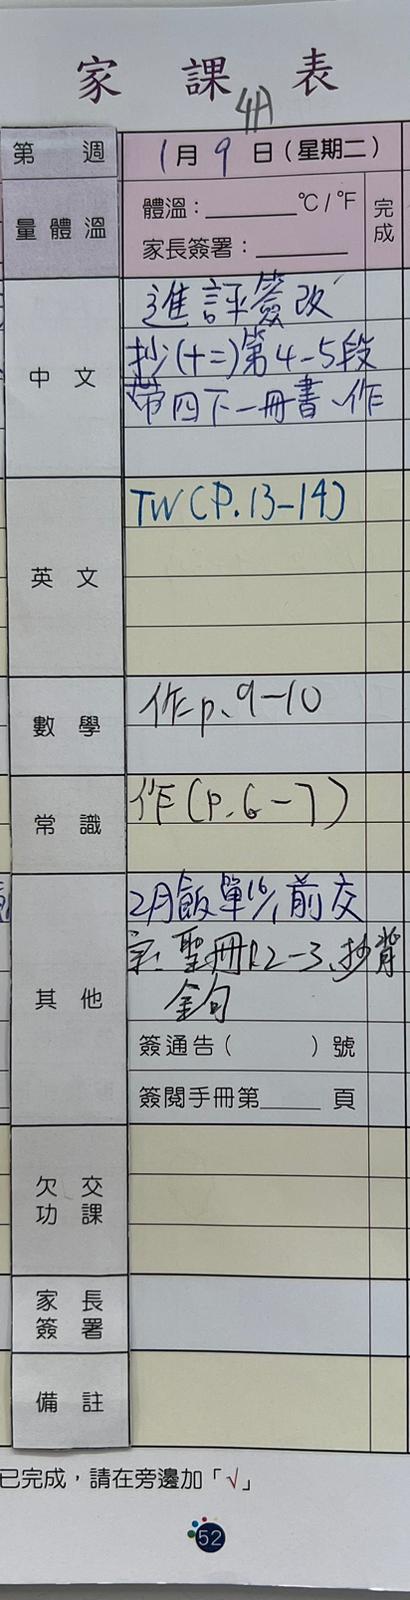 家 課 表
4A
第 週 1月9日(星期二)
量體溫 體溫：________°C/°F 完成
家長簽署：________
中文 進評簽改
抄(十二)第4-5段
帶四下一冊書、作
英文 TW(P.13-14)
數學 作p.9-10
常識 作(P.6-7)
其他 2月飯單16/1前交
聖冊P.2-3、抄背
金句
簽通告( )號
簽閱手冊第____頁
欠交功課
家長簽署
備註
已完成，請在旁邊加「√」
52